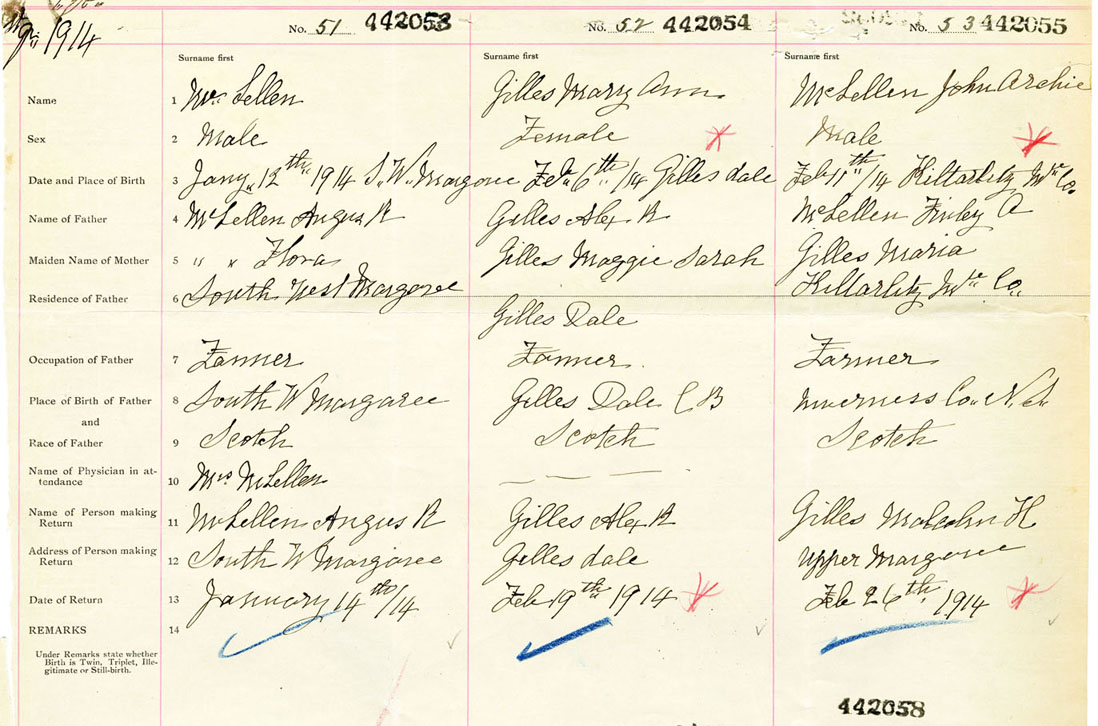 1914
No. 51 442053 No. 52 442054 No. 53 442055
Surname first Surname first Surname first
Name 1 McLellen Gilles Mary Ann McLellen John Archie
Sex 2 Male Female Male
Date and Place of Birth 3 Jany 12th 1914 S. W. Margaree Feb 6th /14 Gilles dale Feb 11th /14 Kiltarlitz Inv Co.
Name of Father 4 McLellen Angus R Gilles Alex R McLellen Finley A
Maiden Name of Mother 5 " " Flora Gilles Maggie Sarah Gilles Maria
Residence of Father 6 South West Margaree Gilles Dale Kiltarlitz Inv Co.
Occupation of Father 7 Farmer Farmer Farmer
Place of Birth of Father 8 South W Margaree Gilles Dale C B Inverness Co. N.S.
and
Race of Father 9 Scotch Scotch Scotch
Name of Physician in at-
tendance 10 Mrs McLellen
Name of Person making
Return 11 McLellen Angus R Gilles Alex R Gilles Malcolm H
Address of Person making
Return 12 South W Margaree Gilles dale Upper Margaree
Date of Return 13 January 14th/14 Feb 19th 1914 Feb 26th 1914
REMARKS 14
Under Remarks state whether
Birth is Twin, Triplet, Ille-
gitimate or Still-birth.
442058